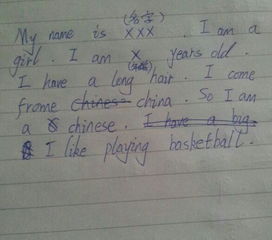 (名字)
My name is XXX. I am a
girl. I am X years old.
I have a long hair. I come
frome china. So I am
a chinese. I have a big
I like playing basketball.